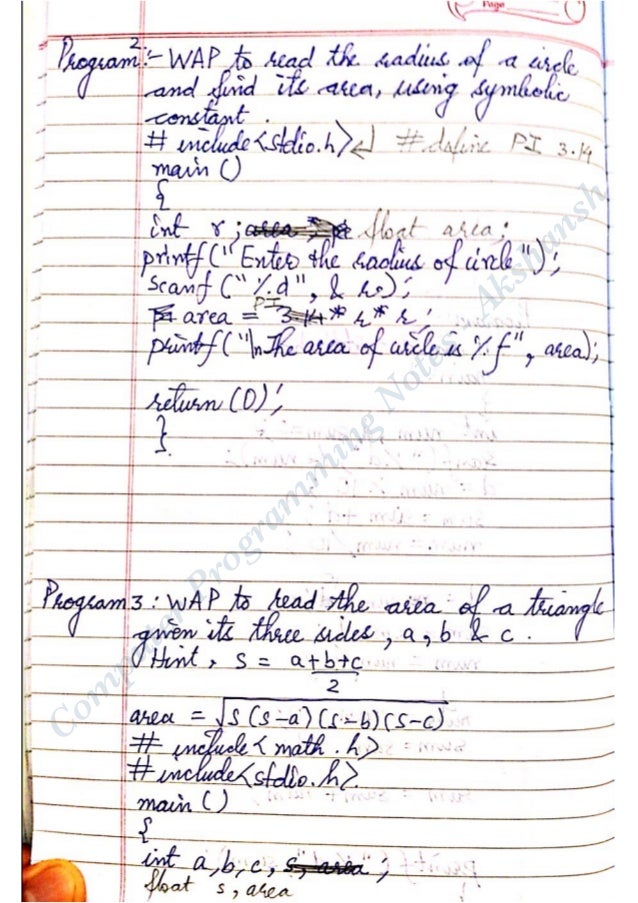 Page
Program 2:- WAP to read the radius of a circle
and find its area, using symbolic
constant.
# include<stdio.h>↵ #define PI 3.14
main ()
{
int r; float area;
printf ("Enter the radius of circle");
scanf ("%d", & r);
area = PI * r * r;
printf ("\n The area of circle is %f", area);
return (0);
}
Program 3 : WAP to read the area of a triangle
given its three sides, a, b & c.
Hint, S = a+b+c
2
area = √S (S-a) (S-b) (S-c)
# include < math . h>
# include<stdio.h>
main ()
{
int a, b, c, ;
float s, area
Computer Programming Notes Akshansh